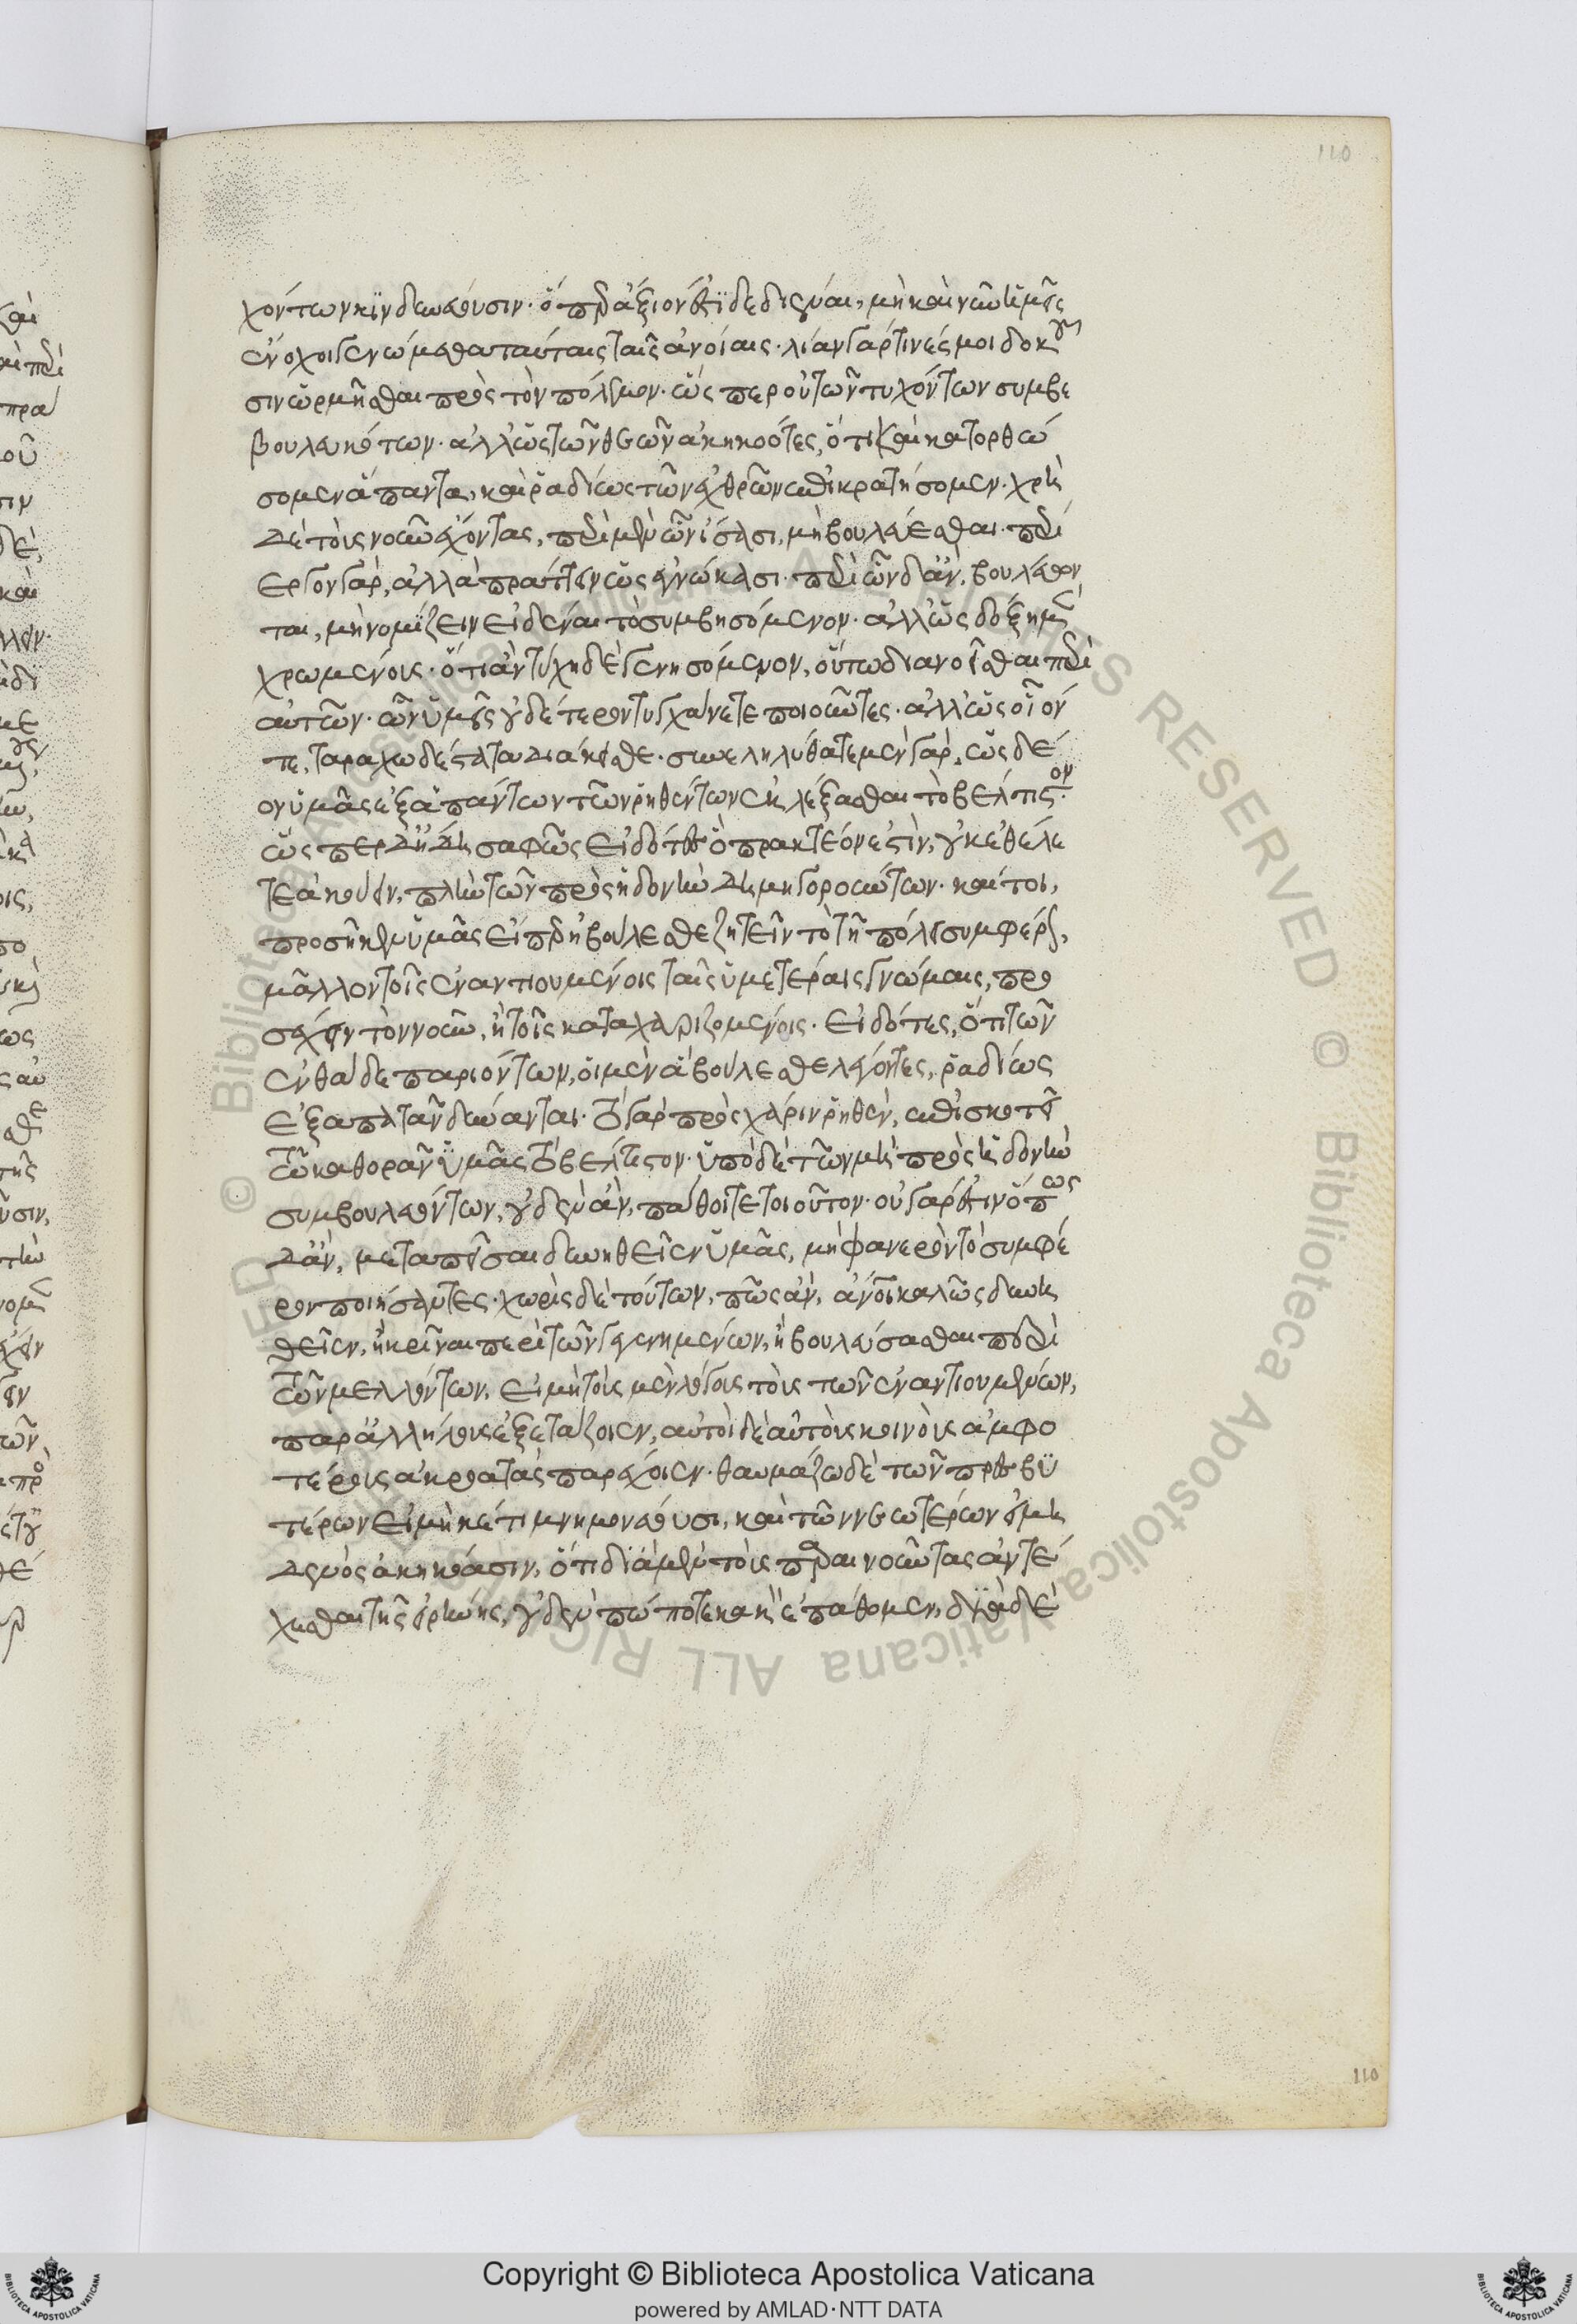 110
χόντων κινδυνεύουσιν· ὅπερ ἄξιόν ἐστι δεδιέναι, μὴ καὶ νῦν ἡμεῖς
ἔνοχοι γενώμεθα ταύταις ταῖς ἀνοίαις· λίαν γάρ τινές μοι δοκοῦ
σιν ὡρμῆσθαι πρὸς τὸν πόλεμον· ὥσπερ οὐ τῶν τυχόντων συμβε
βουλευκότων· ἀλλ' ὡς τῶν θεῶν ἀκηκοότες, ὅτι καὶ κατορθώ
σομεν ἅπαντα, καὶ ῥαδίως τῶν ἐχθρῶν ἐπικρατήσομεν· χρὴ
δὲ τοὺς νοῦν ἔχοντας, περὶ μὲν ὧν ἴσασι, μὴ βουλεύεσθαι· περί
εργον γάρ, ἀλλὰ πράττειν ὡς ἐγνώκασι· περὶ ὧν δ' ἂν, βουλεύων
ται, μὴ νομίζειν εἰδέναι τὸ συμβησόμενον· ἀλλ' ὡς δόξῃ μὲν
χρωμένους· ὅτι ἂν τύχῃ δὲ γενησόμενον, οὕτω διανοεῖσθαι περὶ
αὐτῶν· ὧν ὑμεῖς οὐδέτερον τυγχάνετε ποιοῦντες· ἀλλ' ὡς οἷόν
τε, ταραχωδέστατα διάκεισθε· συνεληλύθατε μὲν γάρ, ὡς δέ
ον ὑμᾶς ἐξ ἁπάντων τῶν ῥηθέντων ἐκλέξασθαι τὸ βέλτιστον·
ὥσπερ δ' ἤδη σαφῶς εἰδότες ὃ πρακτέον ἐστὶν, οὐκ ἐθέλε
τε ἀκούειν, πλὴν τῶν πρὸς ἡδονὴν δημηγορούντων· καίτοι,
προσῆκεν ὑμᾶς εἴπερ ἠβούλεσθε ζητεῖν τὸ τῇ πόλει συμφέρον,
μᾶλλον τοῖς ἐναντιουμένοις ταῖς ὑμετέραις γνώμαις, προ
σέχειν τὸν νοῦν, ἢ τοῖς καταχαριζομένοις· εἰδότες, ὅτι τῶν
ἐνθάδε παριόντων, οἱ μὲν ἃ βούλεσθε λέγοντες, ῥαδίως
ἐξαπατᾶν δύνανται· τὸ γὰρ πρὸς χάριν ῥηθὲν, ἐπισκοτεῖ
τῷ καθορᾶν ὑμᾶς τὸ βέλτιστον· ὑπὸ δὲ τῶν μὴ πρὸς ἡδονὴν
συμβουλευόντων, οὐδὲν ἂν, πάθοιτε τοιοῦτον· οὐ γὰρ ἔστιν ὅπως
δ' ἂν, μεταπεῖσαι δυνηθεῖεν ὑμᾶς, μὴ φανερὸν τὸ συμφέ
ρον ποιήσαντες· χωρὶς δὲ τούτων, πῶς ἂν, ἄνθρωποι καλῶς δυνη
θεῖεν, ἢ κρῖναι περὶ τῶν γεγενημένων, ἢ βουλεύσασθαι περὶ
τῶν μελλόντων, εἰ μὴ τοὺς μὲν λόγους τοὺς τῶν ἐναντιουμένων,
παρ' ἀλλήλους ἐξετάζοιεν, αὐτοὶ δὲ αὑτοὺς κοινοὺς ἀμφο
τέροις ἀκροατὰς παράσχοιεν· θαυμάζω δὲ τῶν πρεσβυ
τέρων εἰ μηκέτι μνημονεύουσι, καὶ τῶν νεωτέρων εἰ μη
δενὸς ἀκηκόασιν, ὅτι διὰ μὲν τοὺς παραινοῦντας ἀντέ
χεσθαι τῆς εἰρήνης, οὐδὲν πώποτε κακὸν ἐπάθομεν, διὰ δὲ
110
Copyright © Biblioteca Apostolica Vaticana
powered by AMLAD·NTT DATA